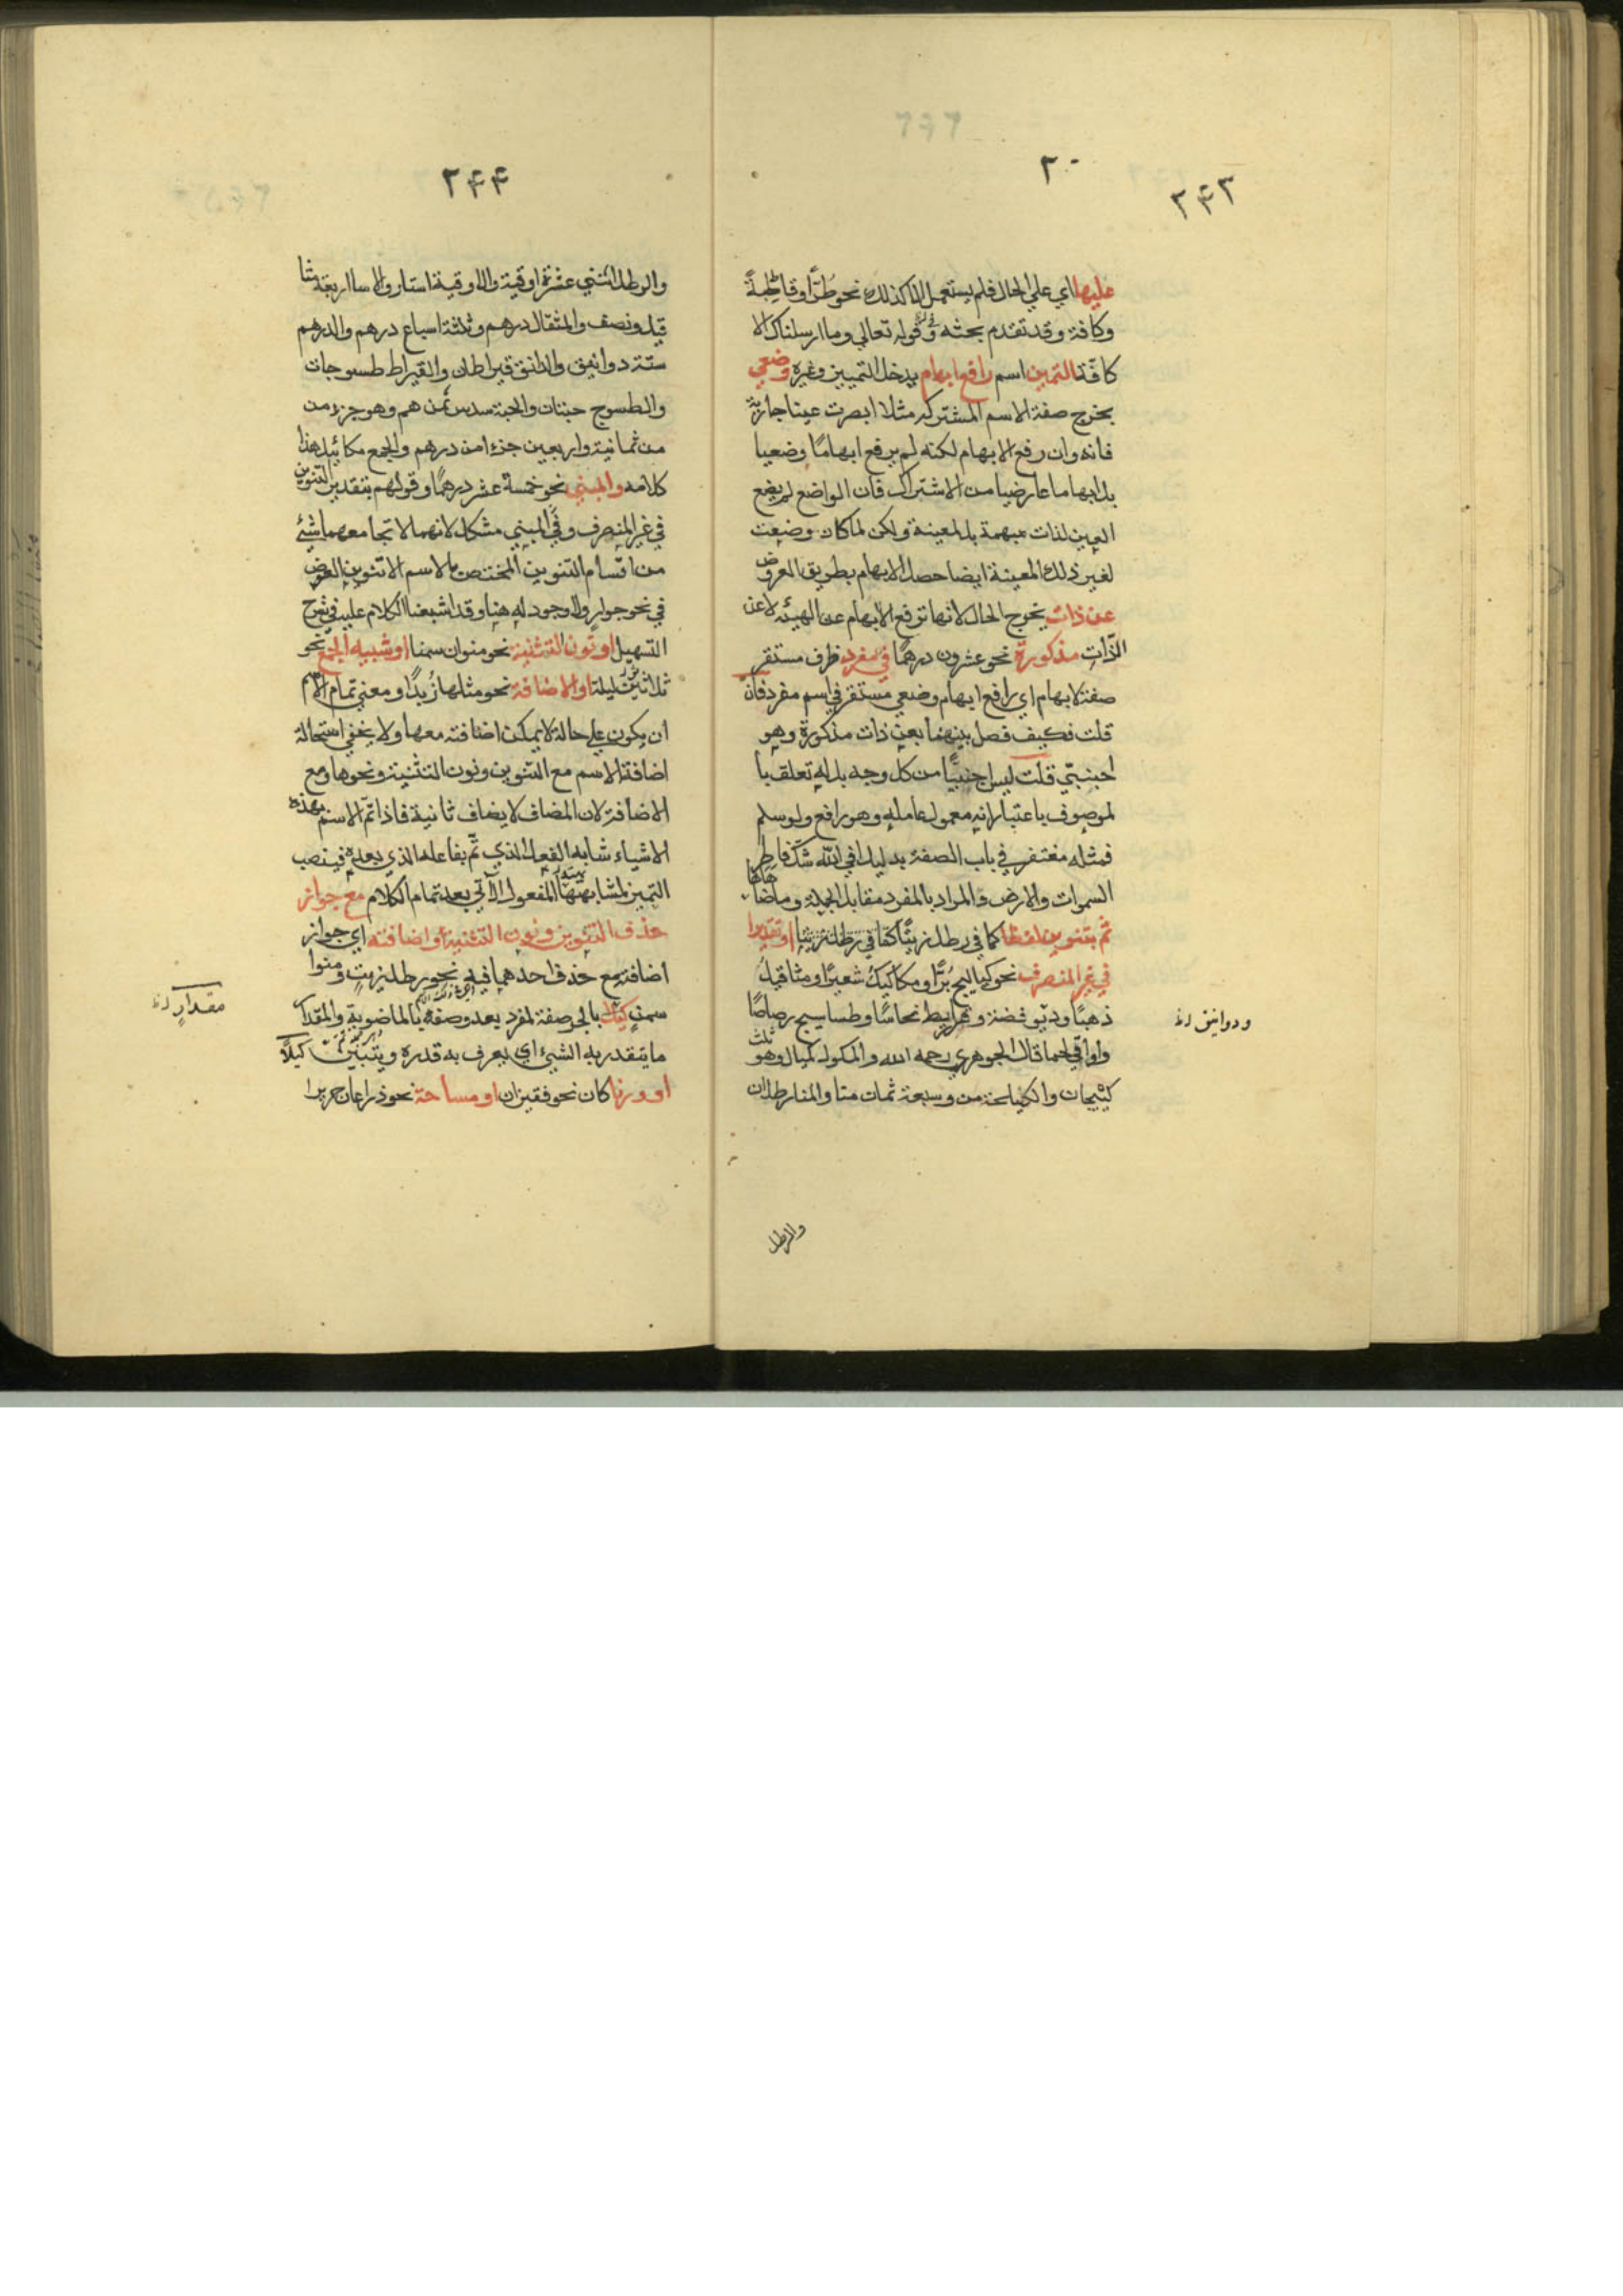 ٣٠
٢٤٣
عليها اي علي الحال فلم يستعمل الا كذلك نحو طرًّا وقاطبةً
وكافة وقد تقدم بحثه وقوله تعالي وما ارسلناك الا
كافّة التميز اسم رافع ابهام يدخل التمييز وغيره وضعي
يخرج صفة الاسم المشترك مثلا ابصرت عينا جارية
فانه وان رفع الابهام لكنه لم يرفع ابهامًا وضعيا
بل ابهاما عارضيا من الاشتراك فان الواضع لم يضع
العين لذات مبهمة بل لمعينة ولكن لما كان وضعت
لغير ذلك المعينة ايضا حصل الابهام بطريق العروض
عن ذات يخرج الحال لانها ترفع الابهام عن الهيئه لا عن
الذّات مذكورة نحو عشرون درهمًا في مفرد ظرف مستقر
صفة لابهام اي رافع ابهام وضعي مستقر في اسم مفرد فان
قلت فكيف فصل بينهما بعن ذات مذكورة وهو
اجنبيّ قلت ليس اجنبيًّا من كل وجه بل له تعلق با
لموصوف باعتبار انه معمول عامله وهو رافع ولو سلم
فمثله مغتفر في باب الصفة بدليل افي الله شك فاطر
السموات والارض والمراد بالمفرد مقابل الجملة وما ضاهاها
تم بتنوين لفظا كما في رطل زيتًا كفا في رطل زيتا او تقديرا
في غير المنصرف نحو كياليج بُرًّا ومكاكيكُ شعيرًا ومثاقيلُ
ذهبًا ودوانيق فضة وقراريط نحاسًا وطساسيج رصاصًا
واواقي لحما قال الجوهري رحمه الله والمكوك مكيال وهو ثلث
كيلجات والكيلجة من وسبعة ثمات منا والمنا رطلان
ودوانيق
والرطل
٢٤٤
والرطل اثنتي عشرة اوقية والاوقية استار
قيل ونصف والمثقال درهم وثلثة اسباع درهم والدرهم
ستة دوانيق والدانق قيراطان والقيراط طسوجات
والطسوج حبتان والحبة سدس ثمن درهم وهو جزء من
من ثمانية واربعين جزءا من درهم والجمع مكائيل هذا
كلامه والمبني نحو خمسة عشر درهمًا وقولهم بتقدير التنوين
في غير المنصرف وفي المبني مشكل لانهما لا تجامعهما شئ
من اقسام التنوين المختص بالاسم الا تنوين العوض
في نحو جوارٍ ولا وجود له هنا وقد اشبعنا الكلام عليه في شرح
التسهيل او نون التثنية نحو منوان سمنا او شبيه الجمع نحو
ثلاثين ليلة او الاضافة نحو مثلها زُبدًا ومعني تمام الاسم
ان يكون علي حالة لا يمكن اضافته معها ولا يخفي استحالة
اضافة الاسم مع التنوين ونون التثنية ونحوها ومع
الاضافة لان المضاف لا يضاف ثانية فاذا تمّ الاسم بهذه
الاشياء شابه الفعل الذي تمّ بفاعله الذي بعده فينصب
التميز لمشابهتها المفعول الآتي بعد تمام الكلام مع جواز
حذف التنوين ونون التثنية واضافته اي جواز
اضافته مع حذف احدهما فيه نحو رطل زيتٍ ومنوا
سمنٍ بالجر صفة لمفرد بعد وصفه بالماضوية والمقدار
ما يتقدر به الشئ اي يعرف به قدره ويتبيّن كيلًا
او وزنا كان نحو قفيزان او مساحة نحو ذراعان حريرا
مقدارٍ